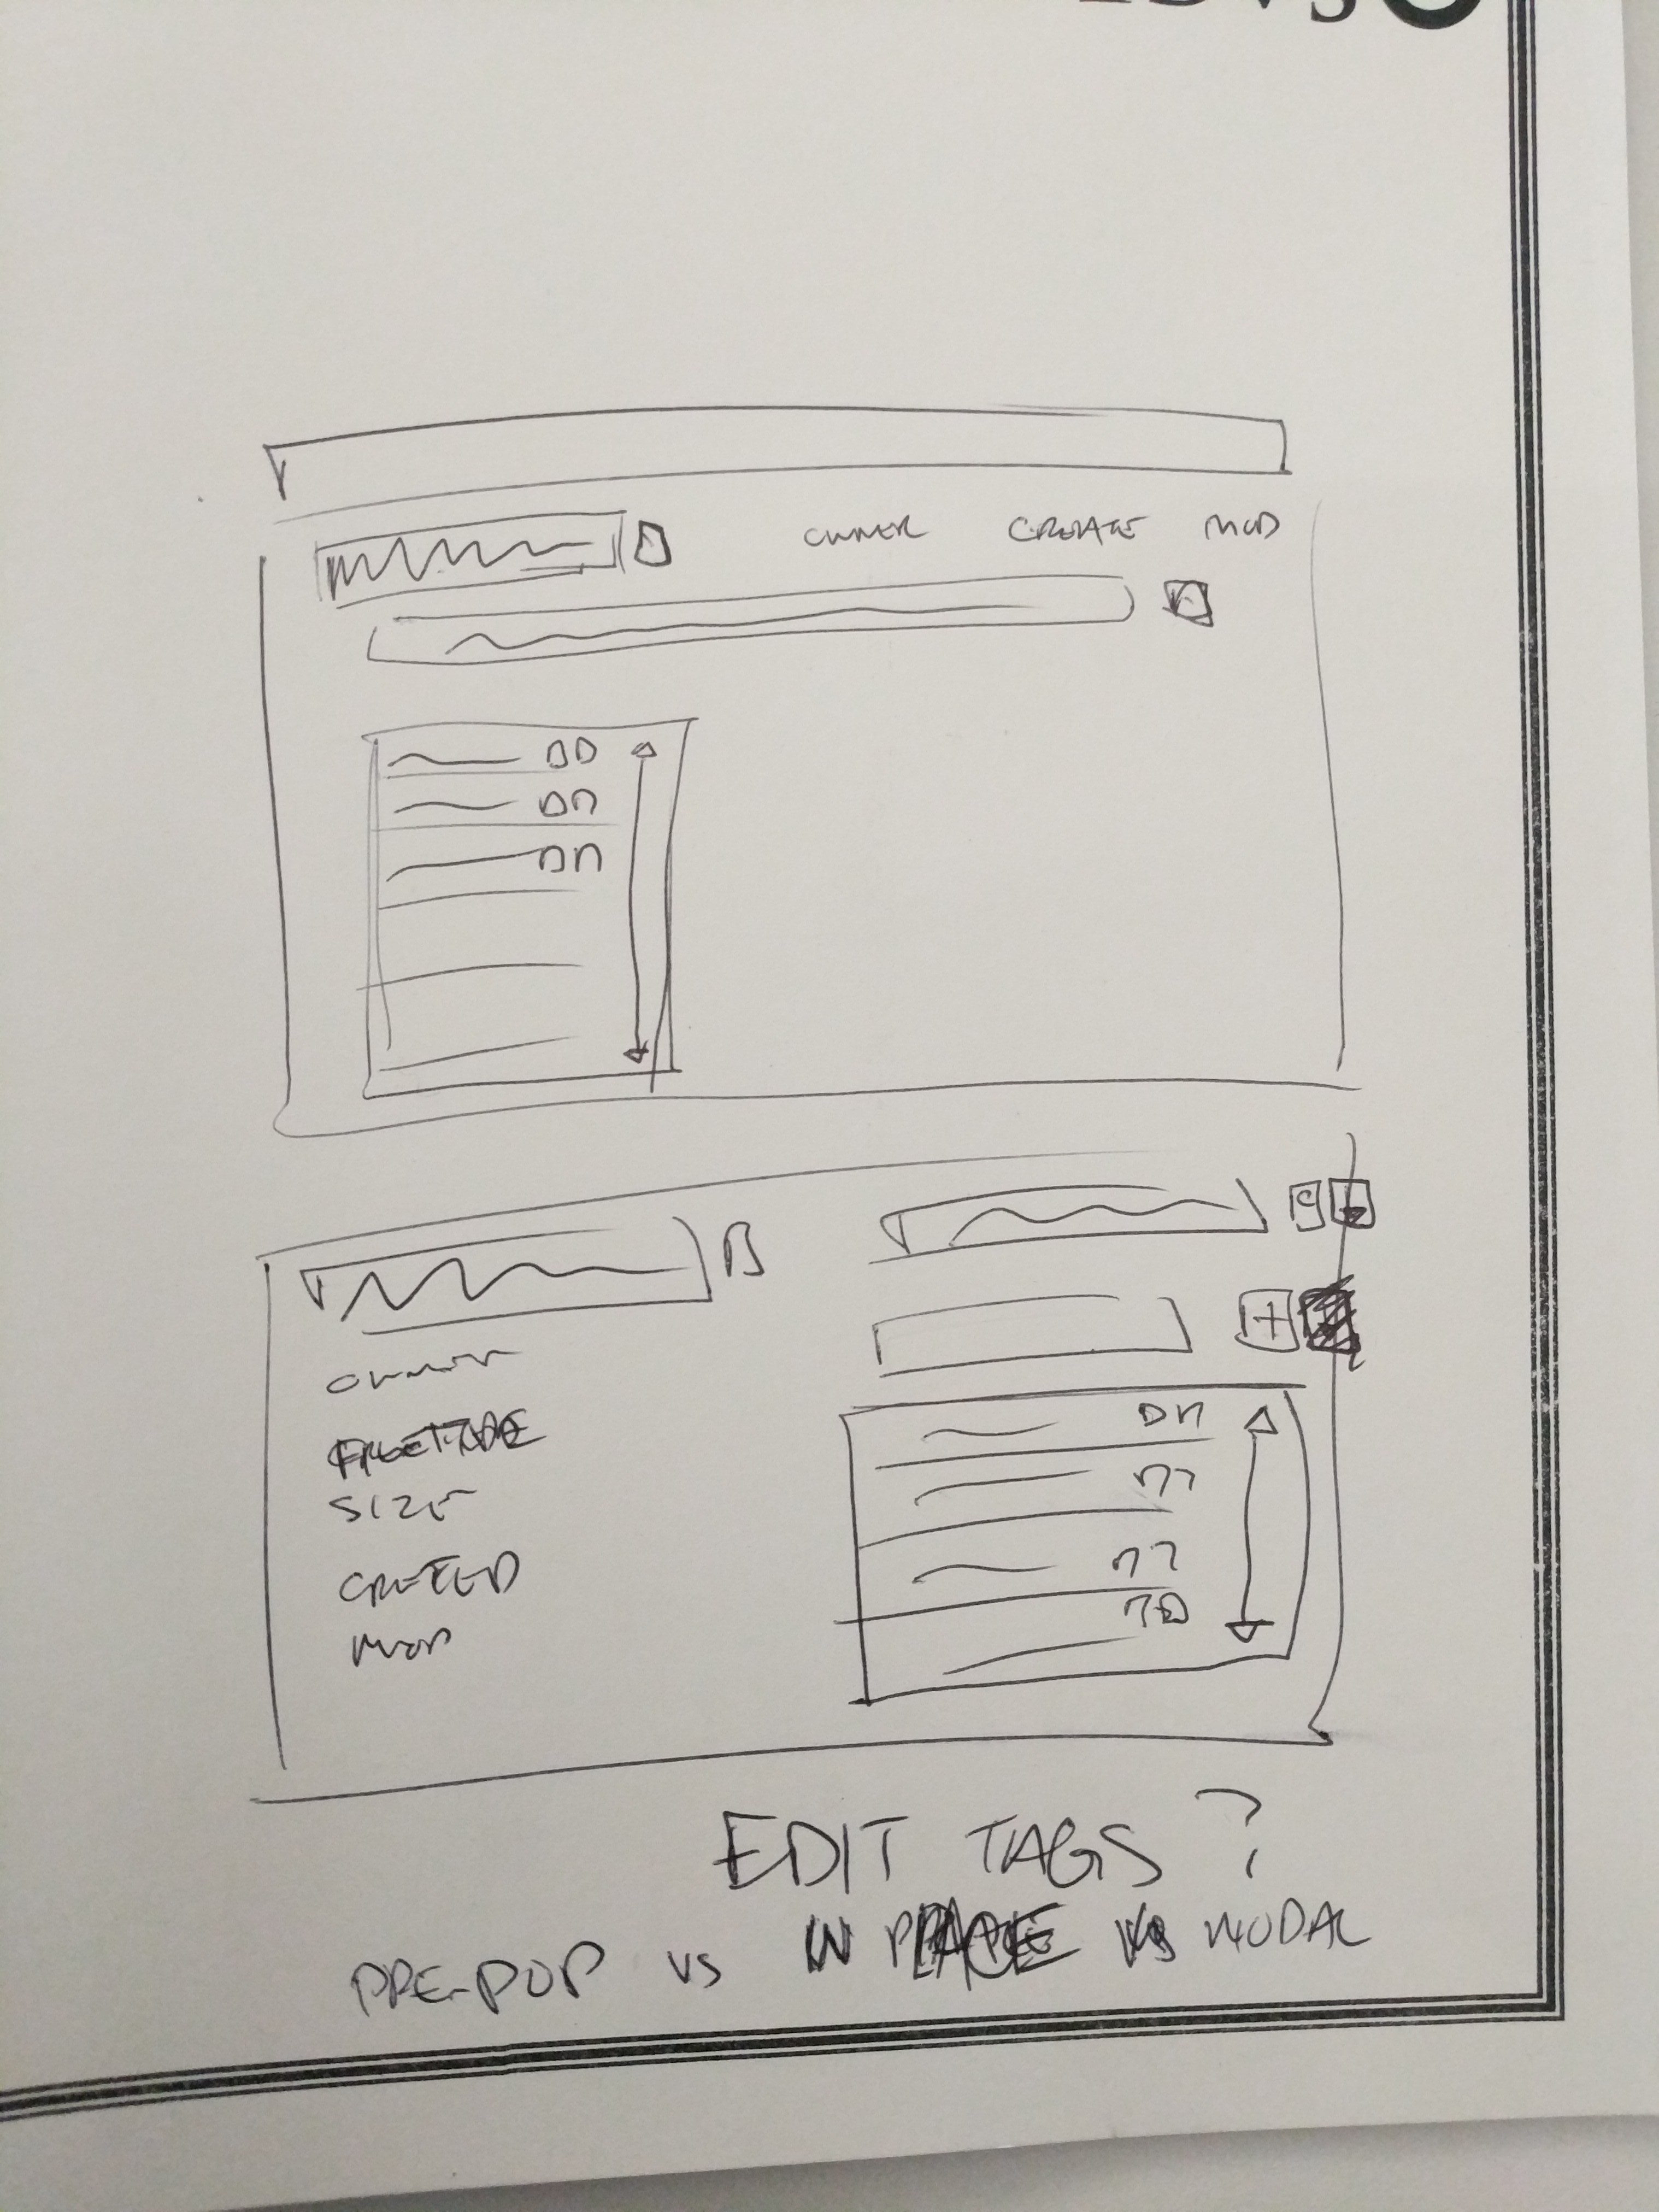 OWNER CREATE MOD
OWNER
FILETYPE
SIZE
CREATED
MOD
EDIT TAGS?
PRE-POP VS IN PLACE VS MODAL